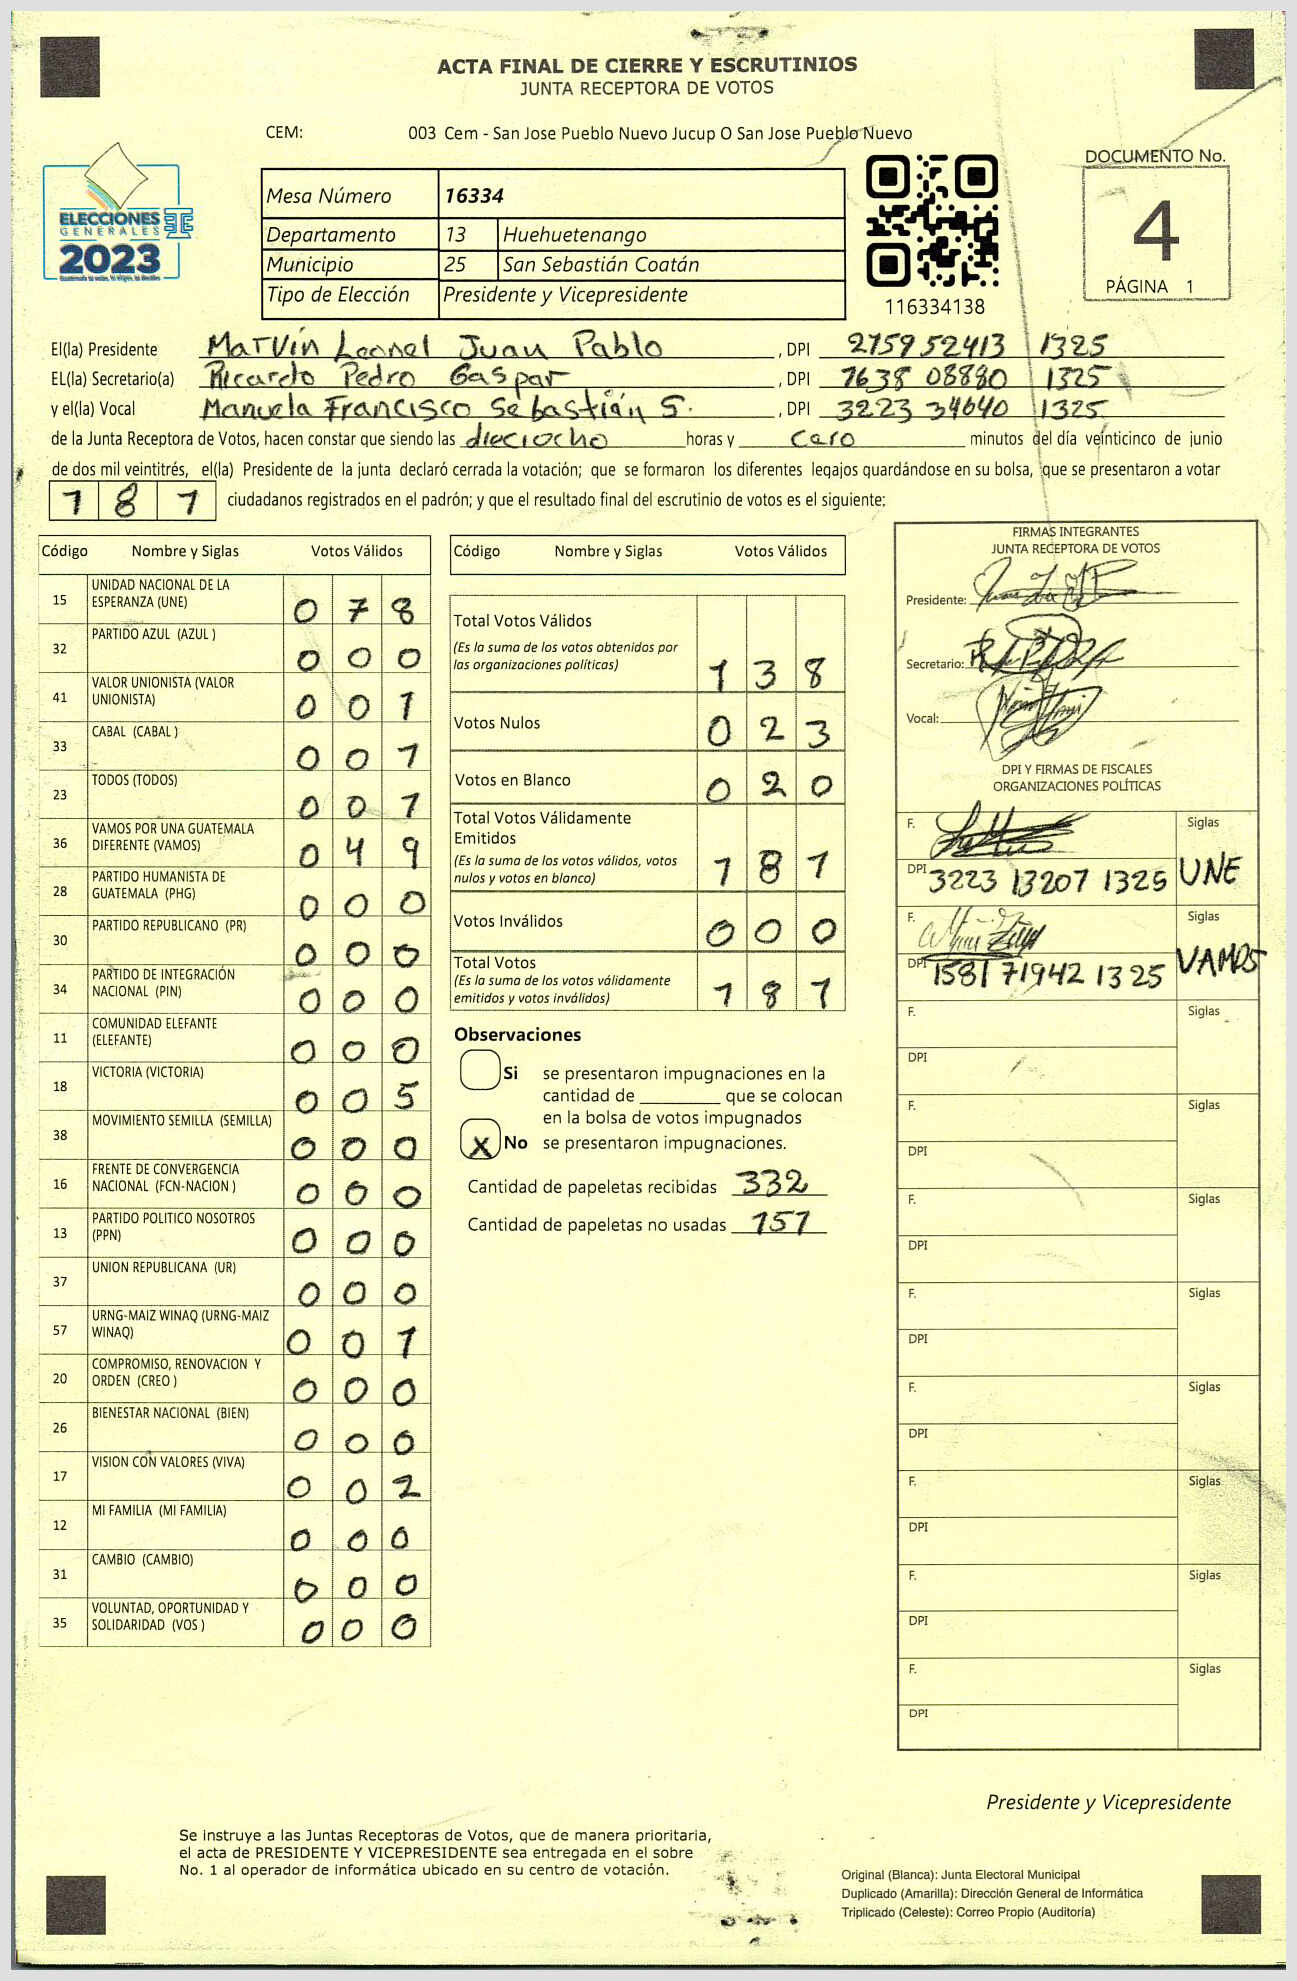 ACTA FINAL DE CIERRE Y ESCRUTINIOS
JUNTA RECEPTORA DE VOTOS
CEM: 003 Cem - San Jose Pueblo Nuevo Jucup O San Jose Pueblo Nuevo
ELECCIONES
GENERALES
2023
Mesa Número 16334
Departamento 13 Huehuetenango
Municipio 25 San Sebastián Coatán
Tipo de Elección Presidente y Vicepresidente
116334138
DOCUMENTO No.
4
PÁGINA 1
El(la) Presidente Marvin Leonel Juan Pablo , DPI 2759 52413 1325
EL(la) Secretario(a) Ricardo Pedro Gaspar , DPI 1638 08880 1325
y el(la) Vocal Manuela Francisco Sebastián S. , DPI 3223 34640 1325
de la Junta Receptora de Votos, hacen constar que siendo las dieciocho horas y cero minutos del día veinticinco de junio
de dos mil veintitrés, el(la) Presidente de la junta declaró cerrada la votación; que se formaron los diferentes legajos quardándose en su bolsa, que se presentaron a votar
181 ciudadanos registrados en el padrón; y que el resultado final del escrutinio de votos es el siguiente:
Código Nombre y Siglas Votos Válidos
15 UNIDAD NACIONAL DE LA
ESPERANZA (UNE) 0 7 8
32 PARTIDO AZUL (AZUL ) 0 0 0
41 VALOR UNIONISTA (VALOR
UNIONISTA) 0 0 1
33 CABAL (CABAL ) 0 0 1
23 TODOS (TODOS) 0 0 1
36 VAMOS POR UNA GUATEMALA
DIFERENTE (VAMOS) 0 4 9
28 PARTIDO HUMANISTA DE
GUATEMALA (PHG) 0 0 0
30 PARTIDO REPUBLICANO (PR) 0 0 0
34 PARTIDO DE INTEGRACIÓN
NACIONAL (PIN) 0 0 0
11 COMUNIDAD ELEFANTE
(ELEFANTE) 0 0 0
18 VICTORIA (VICTORIA) 0 0 5
38 MOVIMIENTO SEMILLA (SEMILLA) 0 0 0
16 FRENTE DE CONVERGENCIA
NACIONAL (FCN-NACION ) 0 0 0
13 PARTIDO POLITICO NOSOTROS
(PPN) 0 0 0
37 UNION REPUBLICANA (UR) 0 0 0
57 URNG-MAIZ WINAQ (URNG-MAIZ
WINAQ) 0 0 1
20 COMPROMISO, RENOVACION Y
ORDEN (CREO ) 0 0 0
26 BIENESTAR NACIONAL (BIEN) 0 0 0
17 VISION CON VALORES (VIVA) 0 0 2
12 MI FAMILIA (MI FAMILIA) 0 0 0
31 CAMBIO (CAMBIO) 0 0 0
35 VOLUNTAD, OPORTUNIDAD Y
SOLIDARIDAD (VOS ) 0 0 0
Código Nombre y Siglas Votos Válidos
Total Votos Válidos
(Es la suma de los votos obtenidos por
las organizaciones políticas) 1 3 8
Votos Nulos 0 2 3
Votos en Blanco 0 2 0
Total Votos Válidamente
Emitidos
(Es la suma de los votos válidos, votos
nulos y votos en blanco) 1 8 1
Votos Inválidos 0 0 0
Total Votos
(Es la suma de los votos válidamente
emitidos y votos inválidos) 1 8 1
Observaciones
Si se presentaron impugnaciones en la
cantidad de ________ que se colocan
en la bolsa de votos impugnados
X No se presentaron impugnaciones.
Cantidad de papeletas recibidas 332
Cantidad de papeletas no usadas 151
FIRMAS INTEGRANTES
JUNTA RECEPTORA DE VOTOS
Presidente:
Secretario:
Vocal:
DPI Y FIRMAS DE FISCALES
ORGANIZACIONES POLÍTICAS
F. Siglas
DPI 3223 13207 1325 UNE
F. Siglas
DPI 1581 71942 1325 VAMOS
F. Siglas
DPI
F. Siglas
DPI
F. Siglas
DPI
F. Siglas
DPI
F. Siglas
DPI
F. Siglas
DPI
F. Siglas
DPI
F. Siglas
DPI
Presidente y Vicepresidente
Se instruye a las Juntas Receptoras de Votos, que de manera prioritaria,
el acta de PRESIDENTE Y VICEPRESIDENTE sea entregada en el sobre
No. 1 al operador de informática ubicado en su centro de votación.
Original (Blanca): Junta Electoral Municipal
Duplicado (Amarilla): Dirección General de Informática
Triplicado (Celeste): Correo Propio (Auditoría)